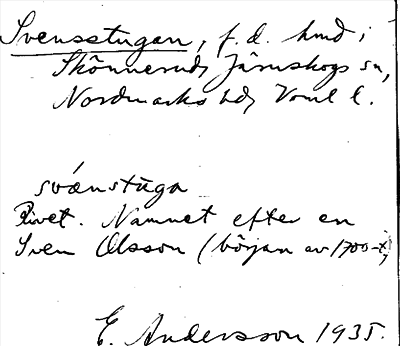 Svensstugan, f.d. hmd i
Skönnerud, Järnskogs sn,
Nordmarks hd, Vrml l.
svænstuga
Rivet. Namnet efter en
Sven Olsson (början av 1700-t.)
E. Andersson 1935.